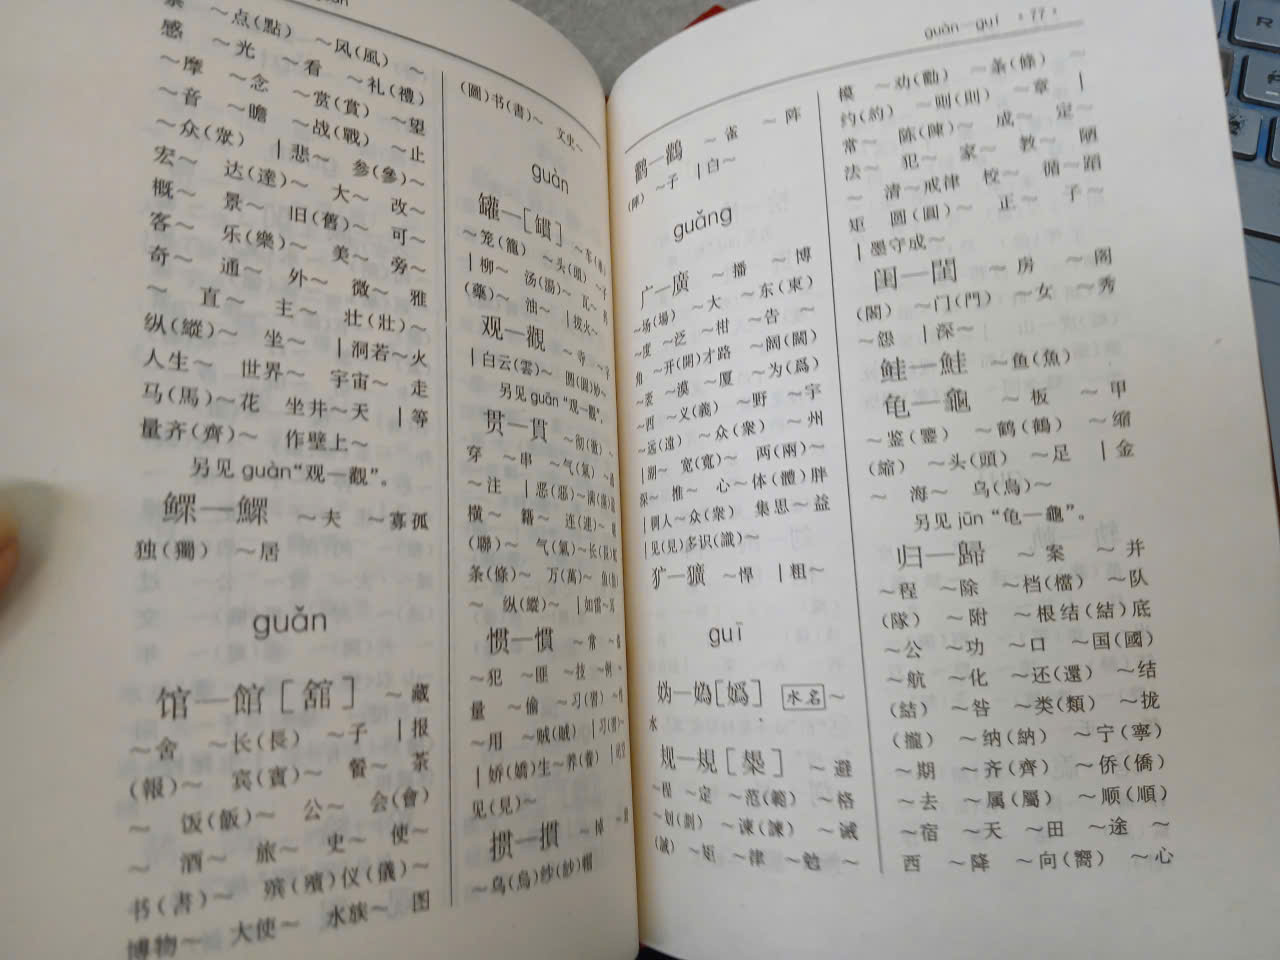 ～点(點) ～风(風) ～
感 ～光 ～看 ～礼(禮)
～摩 ～念 ～赏(賞) ～望
～音 ～瞻 ～战(戰) ～止
～众(眾) | 悲～ 参(參)～
宏～ 达(達)～ 大～ 改～
概～ 景～ 旧(舊)～ 可～
客～ 乐(樂)～ 美～ 旁～
奇～ 通～ 外～ 微～ 雅
～ 直～ 主～ 壮(壯)～
纵(縱)～ 坐～ | 洞若～火
人生～ 世界～ 宇宙～ 走
马(馬)～花 坐井～天 | 等
量齐(齊)～ 作壁上～
另见 guàn“观—觀”。
鳏—鰥 ～夫 ～寡孤
独(獨) ～居
guǎn
馆—館[舘] ～藏
～舍 ～长(長) ～子 | 报
(報)～ 宾(賓)～ 餐～ 茶
～ 饭(飯)～ 公～ 会(會)
～ 酒～ 旅～ 史～ 使～
书(書)～ 殡(殯)仪(儀)～
博物～ 大使～ 水族～ 图
(圖)书(書)～ 文史～
guàn
罐—[鑵] ～车(車)
～笼(籠) ～头(頭) ～子
(藥)～ 油～ | 拔火～
观—觀 ～寺
| 白云(雲)～
另见 guān“观—觀”。
贯—貫 ～彻(徹) ～
穿 ～串 ～气(氣)
～注 | 恶(惡)～满(滿)
横～ 籍～ 连(連)～
(聯)～ 气(氣)～长(長)
条(條)～ 万(萬)～ 鱼(魚)
～ 纵(縱)～ | 如雷～耳
惯—慣 ～常
～犯 ～匪 ～技 ～例
量 ～偷 ～习(習)
～用 ～贼(賊) | 习(習)～
| 娇(嬌)生～养(養)
见(見)～
掼—摜
～乌(烏)纱(紗)帽
guàn—guī ·77·
鹳—鸛 ～雀 ～阵
(陣) ～子 | 白～
guǎng
广—廣 ～播 ～博
～场(場) ～大 ～东(東)
～度 ～泛 ～柑 ～告 ～
角 ～开(開)才路 ～阔(闊)
～袤 ～漠 ～厦 ～为(爲)
～西 ～义(義) ～野 ～宇
～远(遠) ～众(衆) ～州
宽(寬)～ 两(兩)～
深～ 推～ 心～体(體)胖
| 稠人～众(衆) 集思～益
| 见(見)多识(識)～
犷—獷 ～悍 | 粗～
guī
妫—媯[嬀] 水名 ～
水
规—規[槼] ～避
～程 ～定 ～范(範) ～格
～划(劃) ～谏(諫) ～诫
(誡) ～矩 ～律 ～勉 ～
模 ～劝(勸) ～条(條) ～
约(約) ～则(則) ～章 |
常～ 陈(陳)～ 成～ 定～
法～ 犯～ 家～ 教～ 陋
～ 清～戒律 校～ 循～蹈
矩 圆(圓)～ 正～ 子～
| 墨守成～
闺—閨 ～房 ～阁
(閣) ～门(門) ～女 ～秀
～怨 | 深～
鲑—鮭 ～鱼(魚)
龟—龜 ～板 ～甲
～鉴(鑒) ～鹤(鶴) ～缩
(縮) ～头(頭) ～足 | 金
～ 海～ 乌(烏)～
另见 jūn “龟—龜”。
归—歸 ～案 ～并
～程 ～除 ～档(檔) ～队
(隊) ～附 ～根结(結)底
～公 ～功 ～口 ～国(國)
～航 ～化 ～还(還) ～结
(結) ～咎 ～类(類) ～拢
(攏) ～纳(納) ～宁(寧)
～期 ～齐(齊) ～侨(僑)
～去 ～属(屬) ～顺(順)
～宿 ～天 ～田 ～途 ～
西 ～降 ～向(嚮) ～心